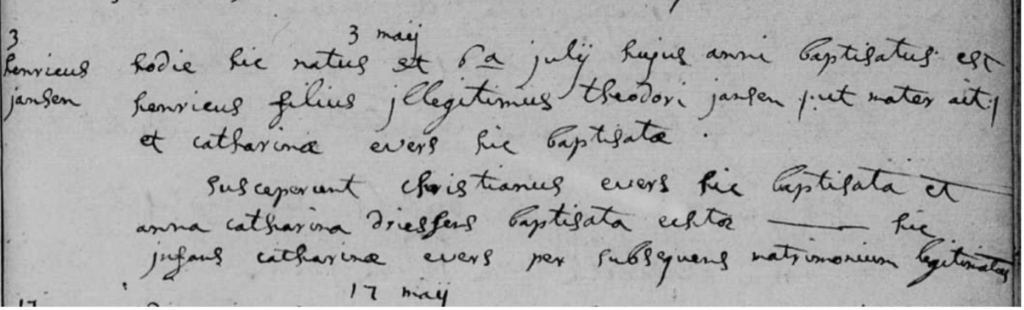 3 maij
3
henricus hodie hic natus et 6a julij hujus anni baptisatus est
jansen henricus filius jllegitimus theodori jansen /:ut mater ait:/
et catharinæ evers hic baptisatæ .
susceperunt christianus evers hic baptisata et
anna catharina driessens baptisata echtæ — hic
jnfans catharinæ evers per subsequens matrimonium legitimatus
17 maij
17